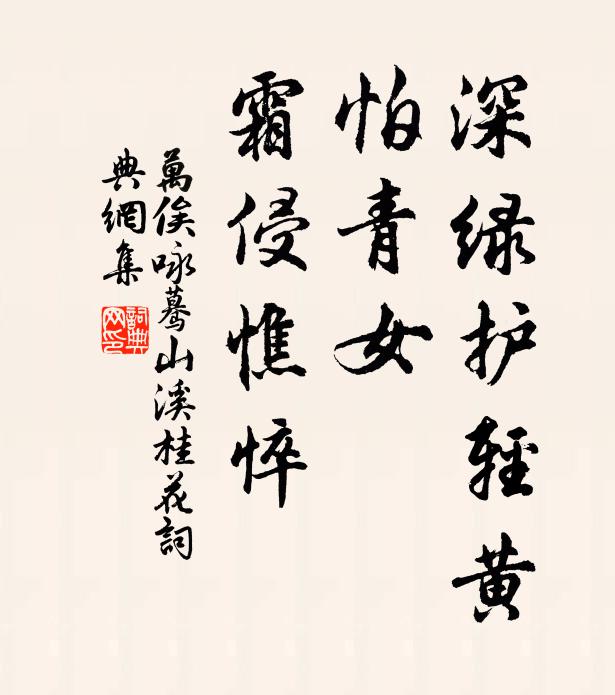 深绿护輕黄
怕青女
霜侵憔悴
萬俟咏蓦山溪桂花詞
典網集
詞典
网印